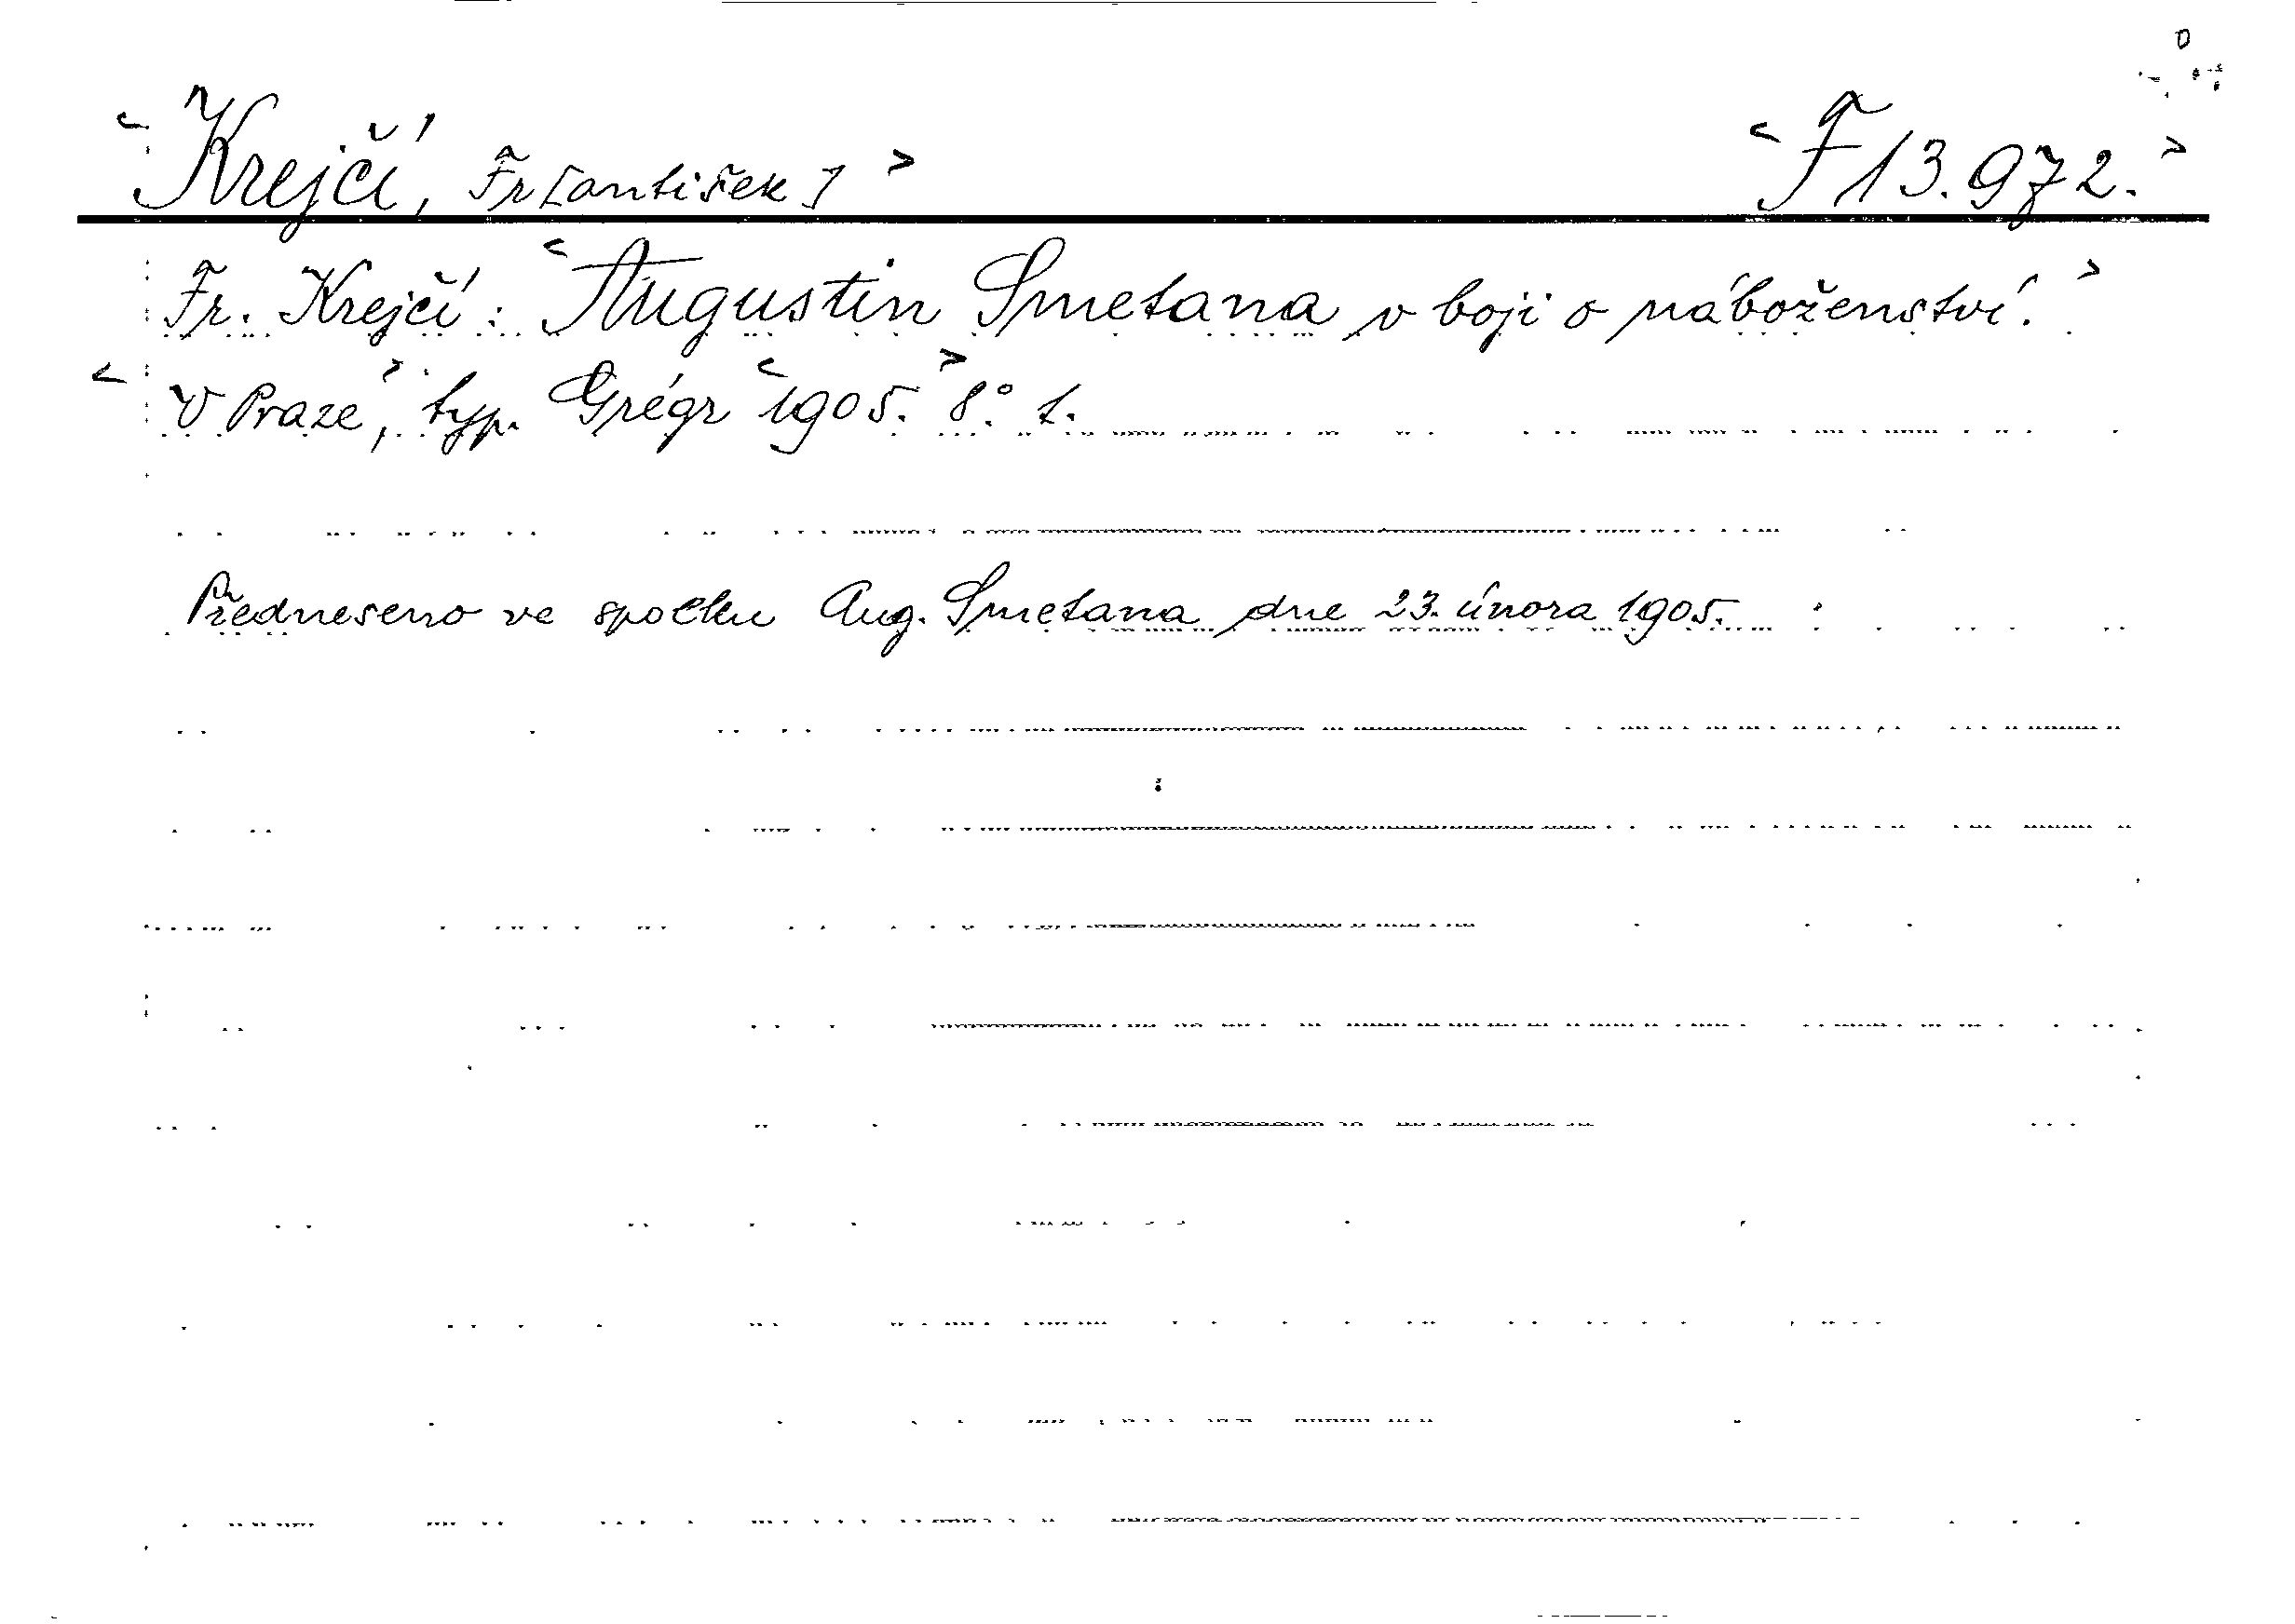 <Krejčí, Fr[antišek]> <F 13.972.>
Fr. Krejčí: <Augustin Smetana v boji o náboženství.>
<V Praze,> typ. Grégr <1905.> 8° 1.
Předneseno ve spolku Aug. Smetana dne 23. února 1905.